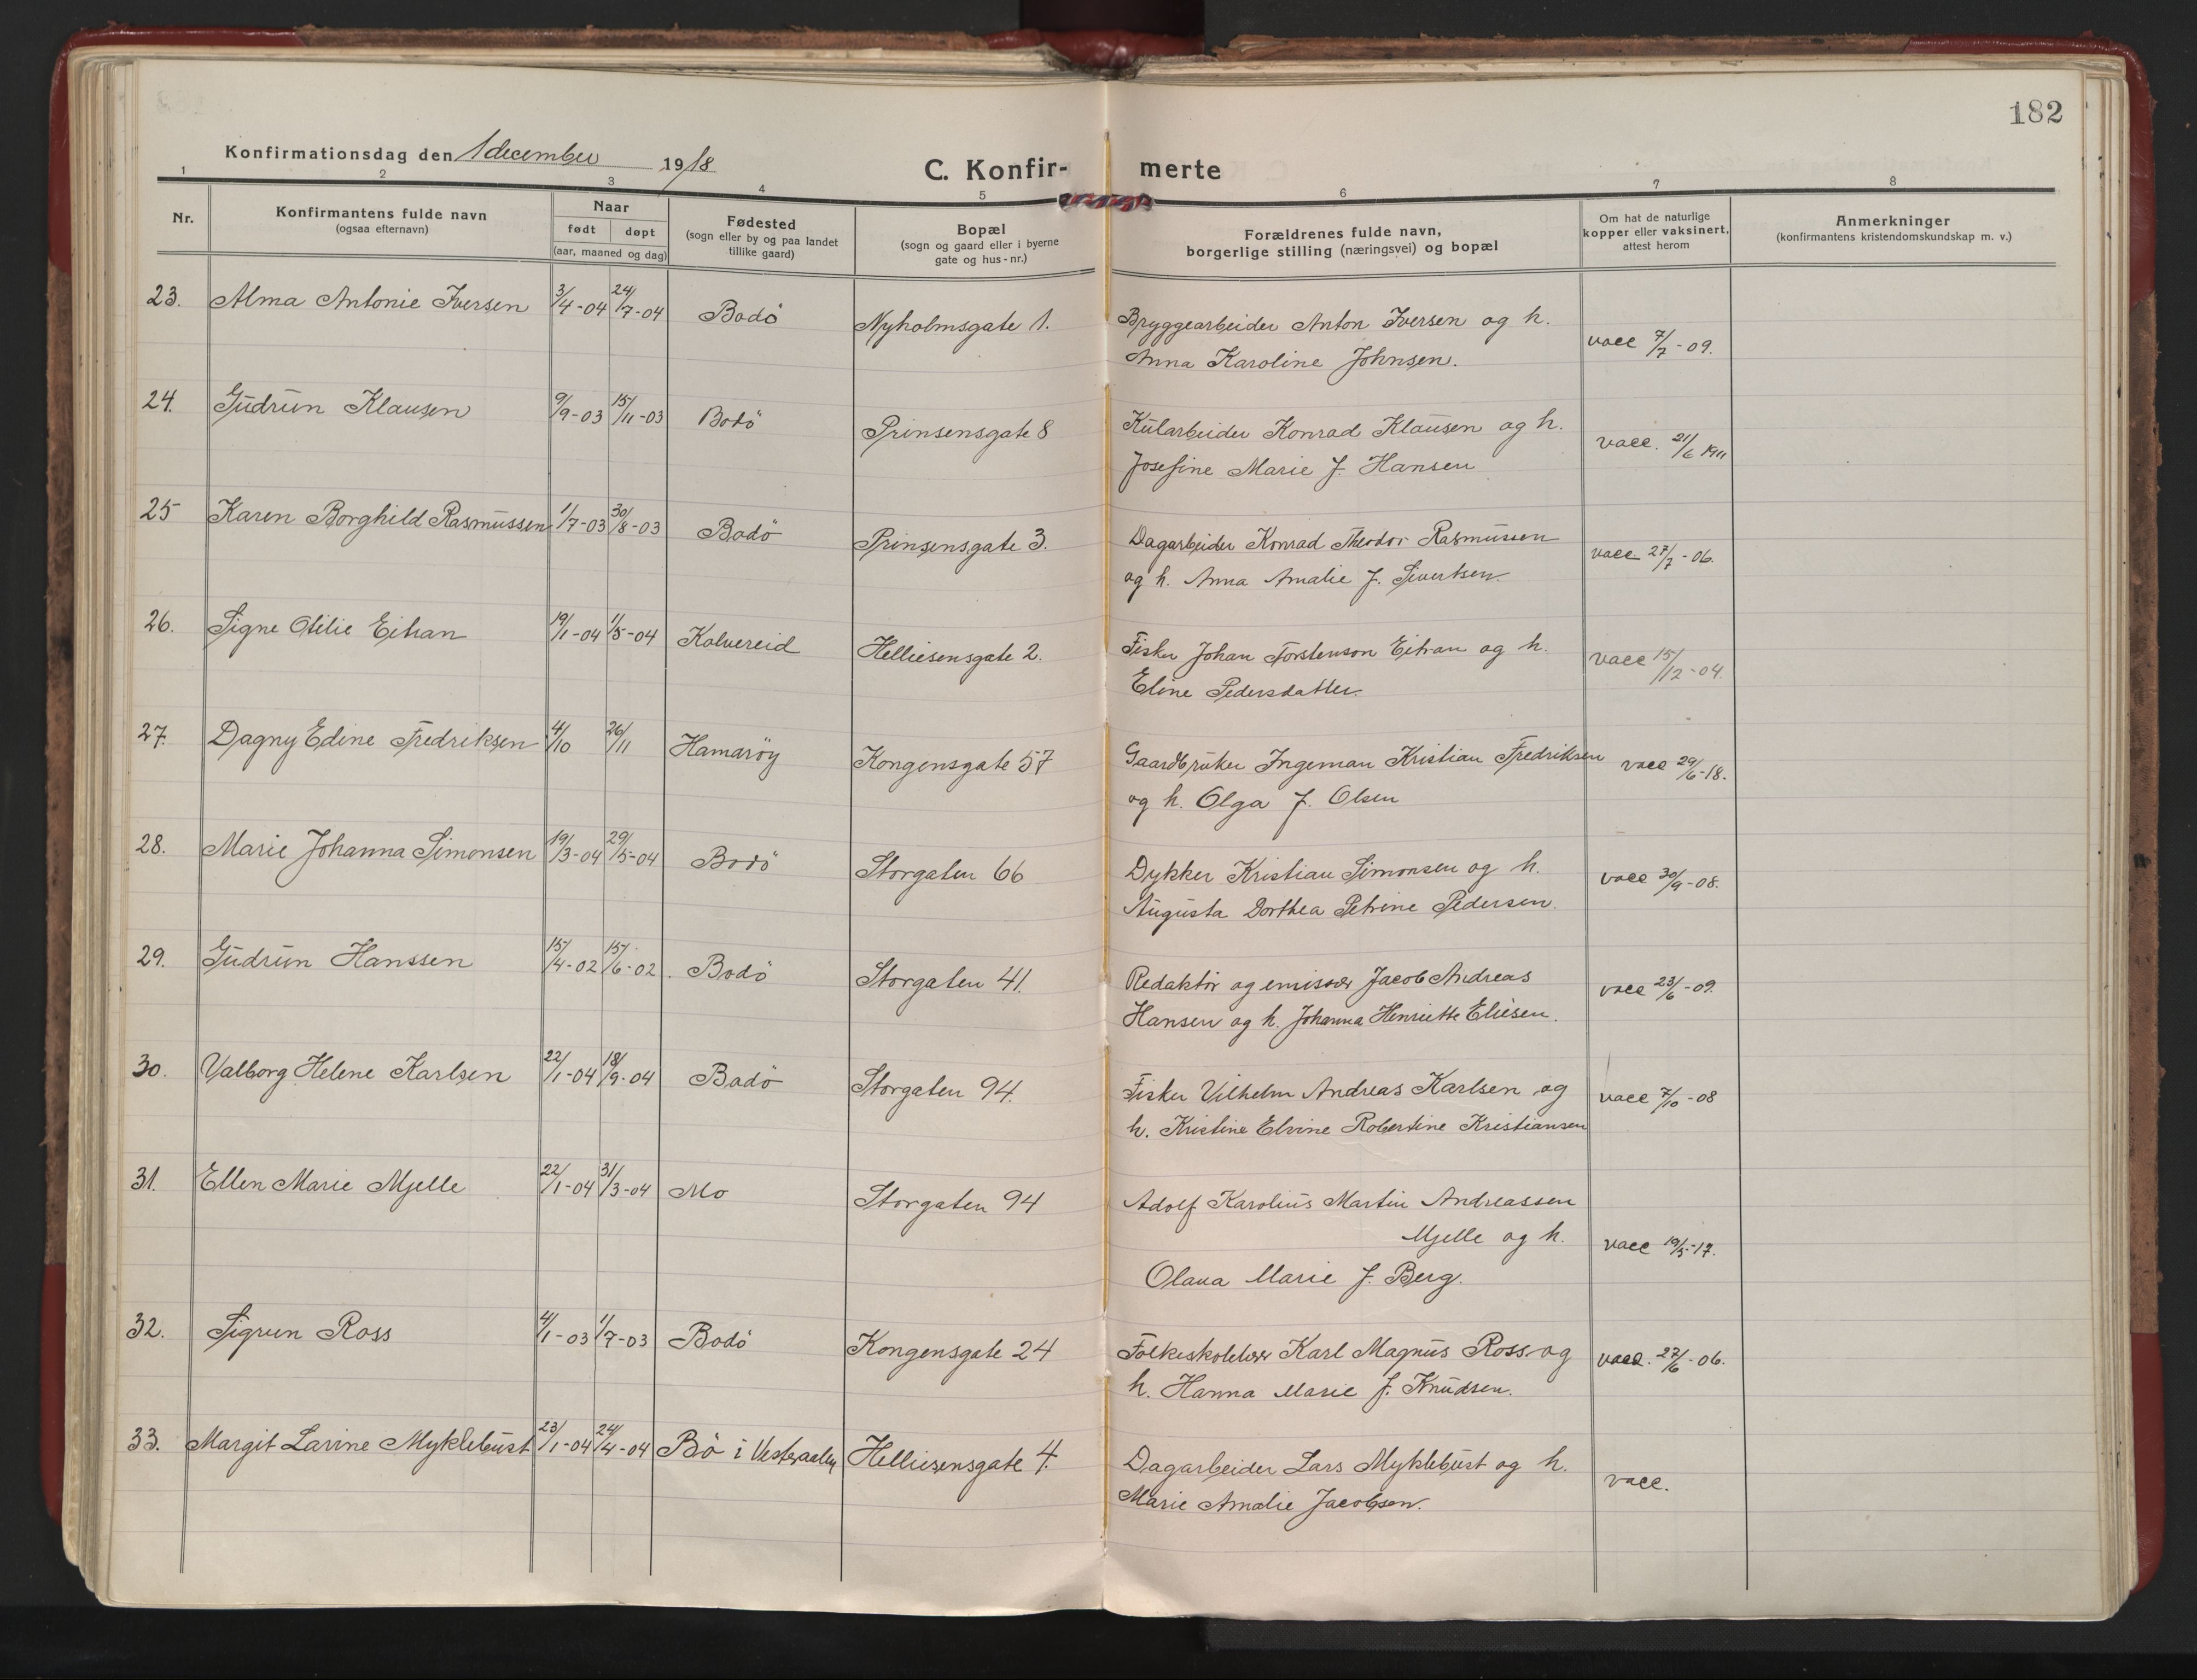 182
Konfirmationsdag den 1 december 1918
C. Konfir- merte
1 2 3 4 5 6 7 8
Nr.
Konfirmantens fulde navn
(ogsaa efternavn)
Naar
født døpt
(aar, maaned og dag)
Fødested
(sogn eller by og paa landet
tillike gaard)
Bopæl
(sogn og gaard eller i byerne
gate og hus-nr.)
Forældrenes fulde navn,
borgerlige stilling (næringsvei) og bopæl
Om hat de naturlige
kopper eller vaksinert,
attest herom
Anmerkninger
(konfirmantens kristendomskundskap m. v.)
23. Alma Antonie Iversen 3/4-04 24/7-04 Bodö Nyholmsgate 1. Bryggearbeider Anton Iversen og h. vacc 7/7-09.
Anna Karoline Johnsen.
24. Gudrun Klausen 9/9-03 15/11-03 Bodö Prinsensgate 8 Kularbeider Konrad Klausen og h. vacc. 21/6 1911
Josefine Marie f. Hansen
25 Karen Borghild Rasmussen 1/7-03 30/8-03 Bodö Prinsensgate 3. Dagarbeider Konrad Theodor Rasmussen vacc 27/7-06.
og h. Anna Amalie f. Sivertsen.
26. Signe Otelie Eitran 19/1-04 1/5-04 Kalvereid Helliesensgate 2. Fisker Johan Torstenson Eitran og h. vacc 15/12-04.
Eline Pedersdatter.
27. Dagny Edine Fredriksen 4/10 26/11 Hamaröy Kongensgate 57 Gaardbruker Ingeman Kristian Fredriksen vacc 29/6-18.
og h. Olga f. Olsen
28. Marie Johanna Simonsen 19/3-04 29/5-04 Bodö Storgaten 66 Dykker Kristian Simonsen og h. vacc 30/9-08.
Augusta Dorthea Petrine Pedersen.
29. Gudrun Hanssen 15/4-02 15/6-02. Bodö Storgaten 41. Redaktör og emissær Jacob Andreas vacc 23/6-09.
Hansen og h. Johanna Henriette Eliesen.
30. Valborg Helene Karlsen 22/1-04 18/9-04 Bodö Storgaten 94. Fisker Vilhelm Andreas Karlsen og vacc 7/10-08
h. Kristine Elvine Robertine Kristiansen
31. Ellen Marie Mjelle 22/1-04 31/3-04 Mo Storgaten 94 Adolf Karolius Martin Andreassen
Mjelle og h. vacc 19/5-17.
Olava Marie f. Berg.
32. Sigrun Ross 4/1-03 1/7-03 Bodö Kongensgate 24 Folkeskolelærer Karl Magnus Ross og vacc. 27/6-06.
h. Hanna Marie f. Knudsen.
33. Margit Lavine Myklebust 23/1-04 24/4-04 Bö i Vesteraalen Helliesensgate 4. Dagarbeider Lars Myklebust og h. vacc.
Marie Amalie Jacobsen.